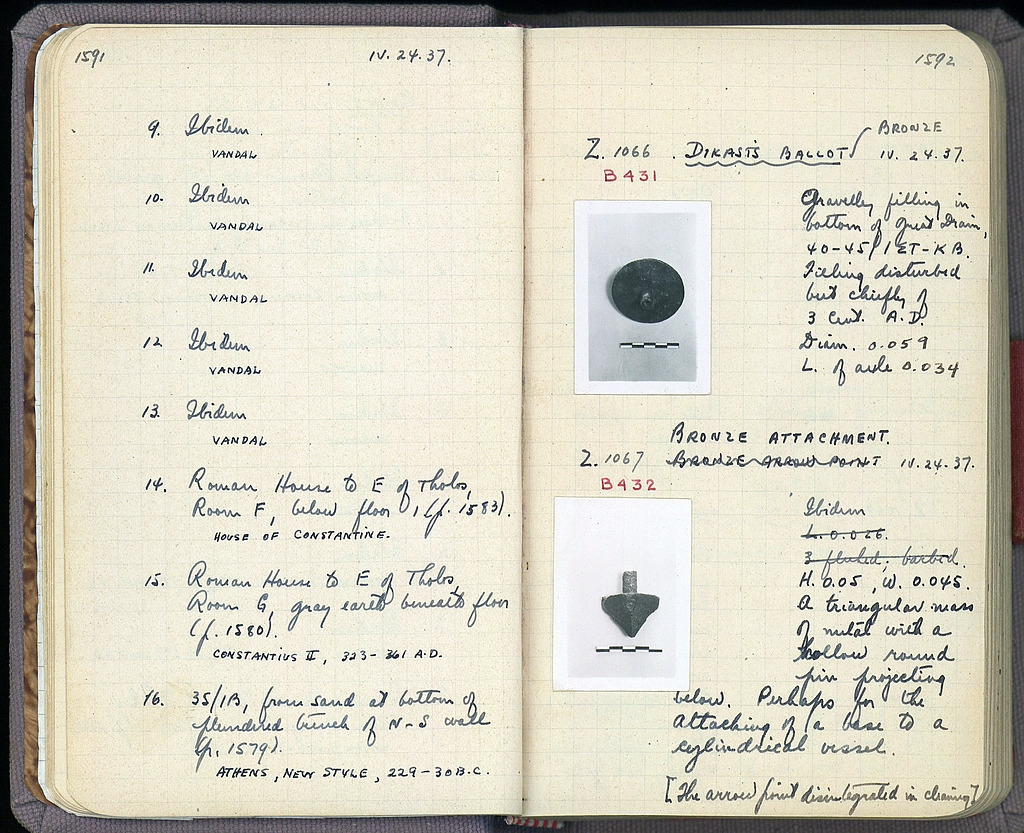 1591
IV. 24. 37.
9. Ibidem
VANDAL
10. Ibidem
VANDAL
11. Ibidem
VANDAL
12 Ibidem
VANDAL
13. Ibidem
VANDAL
14. Roman House to E of Tholos,
Room F, below floor 1 (p. 1583).
HOUSE OF CONSTANTINE.
15. Roman House to E of Tholos,
Room G, gray earth beneath floor
(p. 1580).
CONSTANTIUS II, 323-361 A.D.
16. 35/IB, from sand at bottom of
plundered trench of N-S wall
(p. 1579).
ATHENS, NEW STYLE, 229-30 B.C.
1592
BRONZE
Z. 1066 . DIKAST'S BALLOT IV. 24. 37.
B 431
Gravelly filling in
bottom of Great Drain,
40-45/IET-KB.
Filling disturbed
but chiefly of
3 Cent. A.D.
Diam. 0.059
L. of axle 0.034
BRONZE ATTACHMENT.
Z. 1067 BRONZE ARROW POINT IV. 24. 37.
B 432
Ibidem
L. 0.026.
3 fluked, barbed.
H. 0.05, W. 0.045.
A triangular mass
of metal with a
hollow round
pin projecting
below. Perhaps for the
attaching of a base to a
cylindrical vessel.
[The arrow point disintegrated in cleaning]